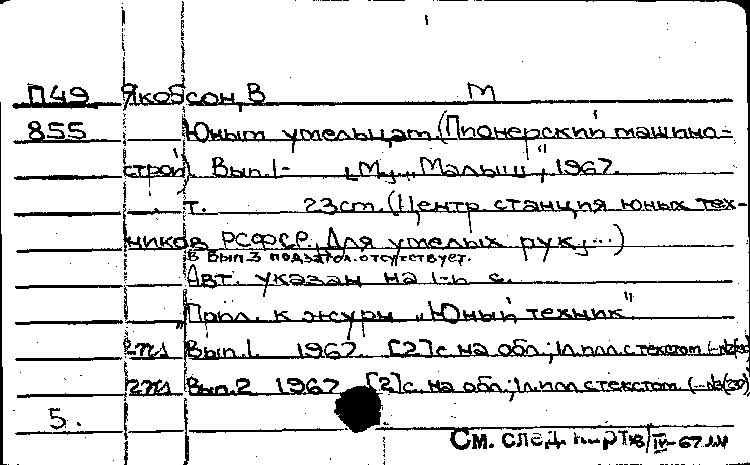 П49 Якобсон, В М
855 Юным умельцам. (Пионерский машино-
строй). Вып. 1- [М., „Малыш", 1967.
т. 23 cm. (Центр станция юных тех-
ников РСФСР. Для умелых рук, ...)
В вып. 3 подзагол. отсутствует.
Авт. указан на 1-й с.
„Прил. к журн „Юный техник"
Вып. 1. 1967. [2] с. на обл.; 1 л. илл. с текстом.
Вып. 2 1967 [2] с. на обл.; 1 л. илл. с текстом. (...№3(237)
5.
См. след. к-рт